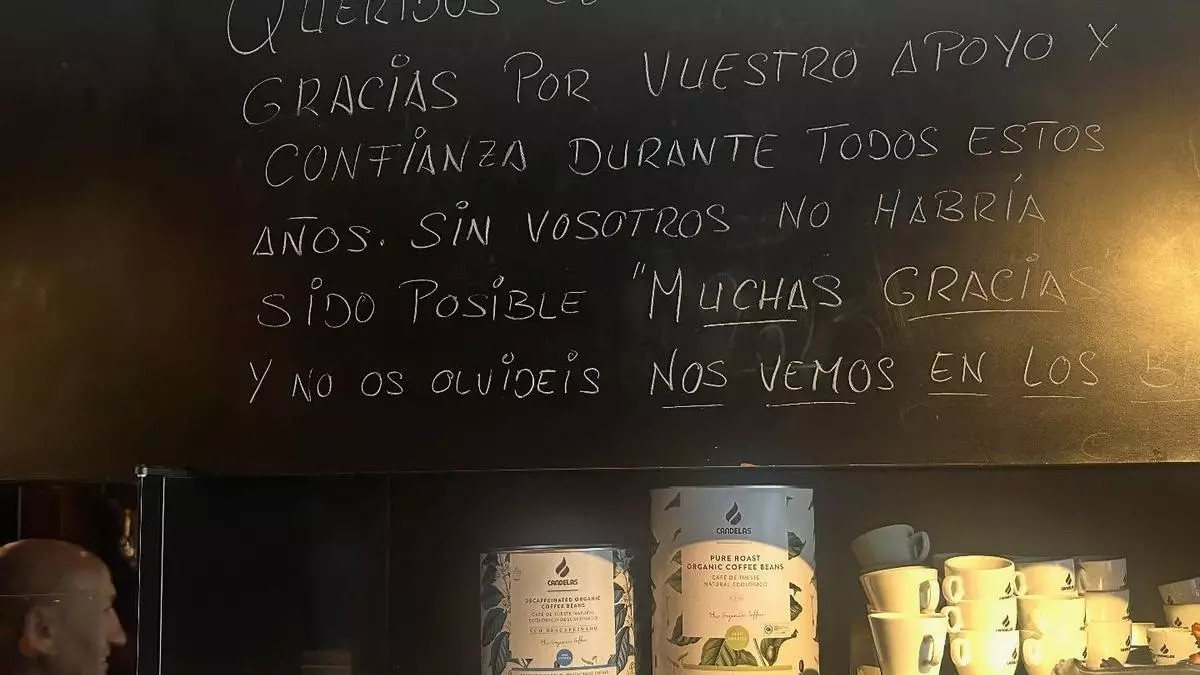 QUERIDOS
GRACIAS POR VUESTRO APOYO Y
CONFIANZA DURANTE TODOS ESTOS
AÑOS. SIN VOSOTROS NO HABRÍA
SIDO POSIBLE "MUCHAS GRACIAS"
Y NO OS OLVIDEIS NOS VEMOS EN LOS
CANDELAS
DECAFFEINATED ORGANIC
COFFEE BEANS
CAFÉ DE TUESTE NATURAL
ECOLÓGICO DESCAFEINADO
ECO DESCAFEINADO
The Organic Coffee
CANDELAS
PURE ROAST
ORGANIC COFFEE BEANS
CAFÉ DE TUESTE
NATURAL ECOLÓGICO
The Organic Coffee
CANDELAS